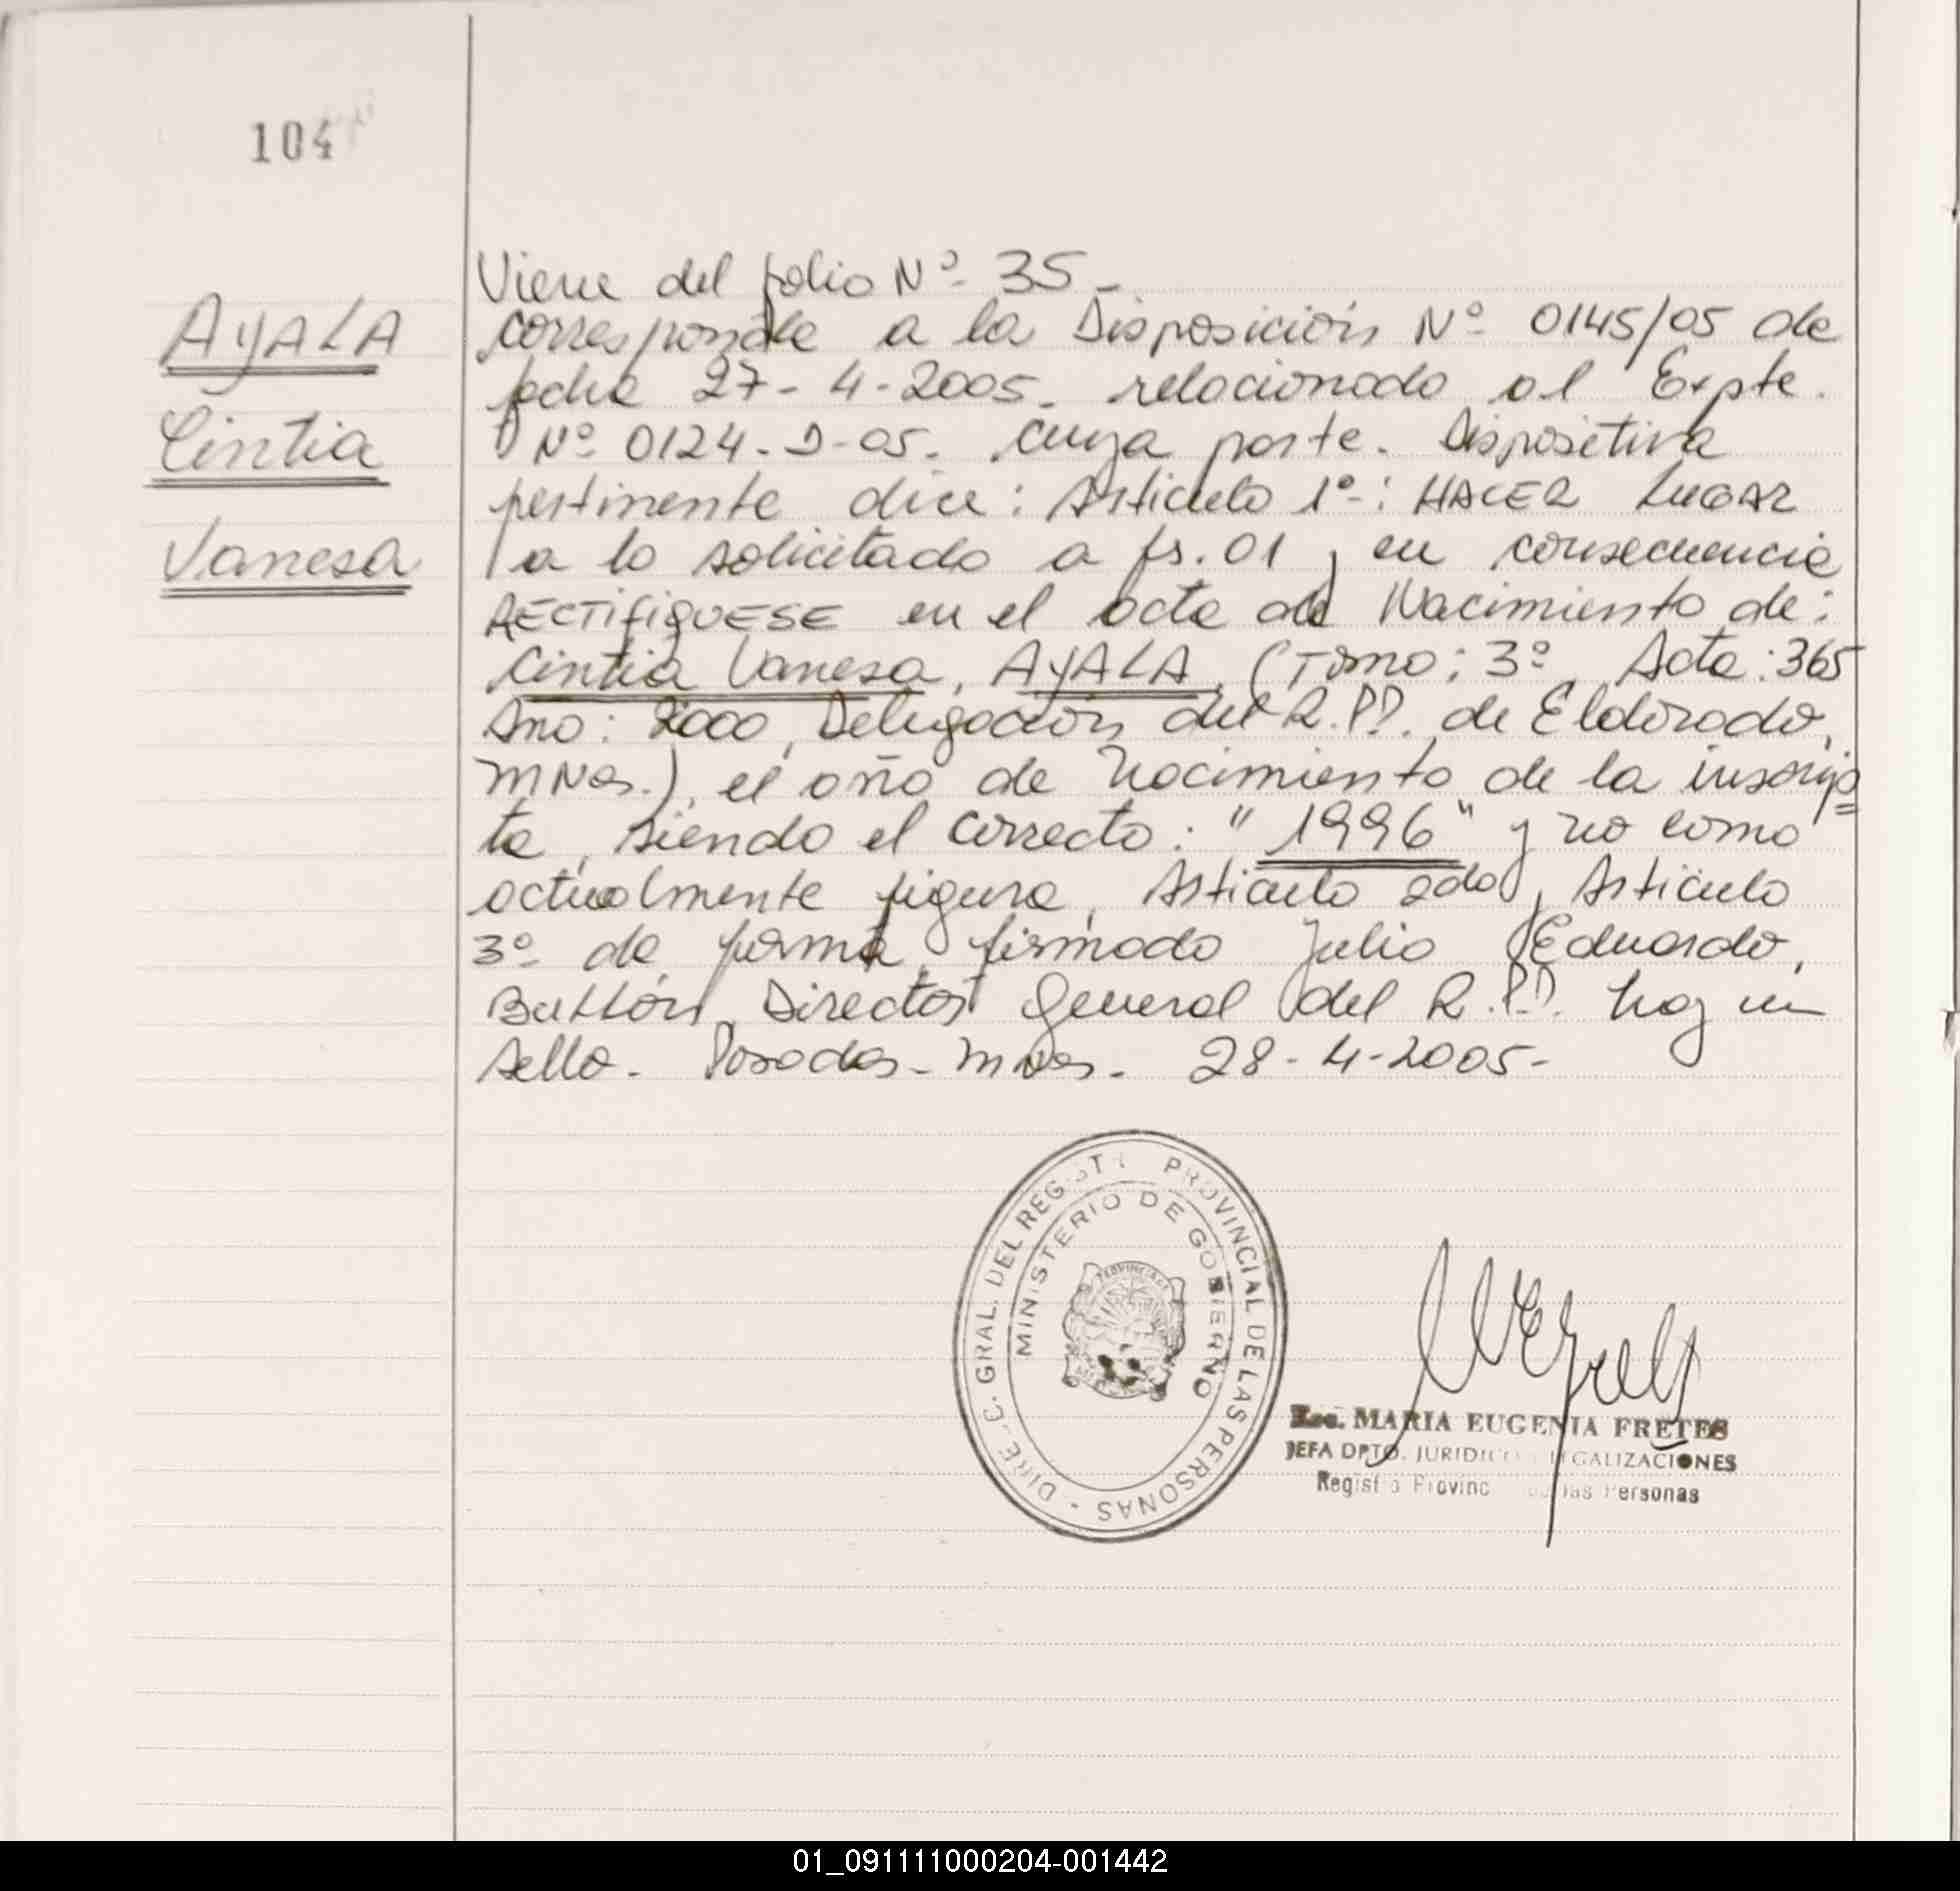 104
AyALA
Cintia
Vanesa
Viene del folio Nº 35-
corresponde a la Disposición Nº 0145/05 de
fecha 27-4-2005. relacionado al Expte.
Nº 0124-D-05. cuya parte. Dispositiva
pertinente dice: Artículo 1º: HACER LUGAR
a lo solicitado a fs. 01, en consecuencia
RECTIFIQUESE en el acta de Nacimiento de:
Cintia Vanesa, AYALA (Tomo: 3º, Acta: 365
Año: 2000, Delegación del R.P.P. de Eldorado,
Mnes.), el año de nacimiento de la inscrip
ta, siendo el correcto: "1996" y no como
actualmente figura, Artículo 2do, Artículo
3º de forma, firmado Julio Eduardo,
Director General del R.P.P. hay un
sello. Posadas-Mnes. 28-4-2005-
DIREC. GRAL. DEL REGISTR PROVINCIAL DE LAS PERSONAS -
MINISTERIO DE GOBIERNO
Esc. MARIA EUGENIA FRETES
JEFA DPTO. JURIDICO LEGALIZACIONES
Registro Provinc de las Personas
01_091111000204-001442